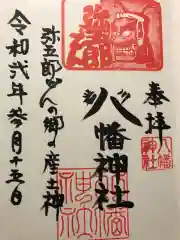 奉拝
八幡神社
弥五郎どんの郷の産土神
令和弐年参月十五日
弥五郎
八幡
神社